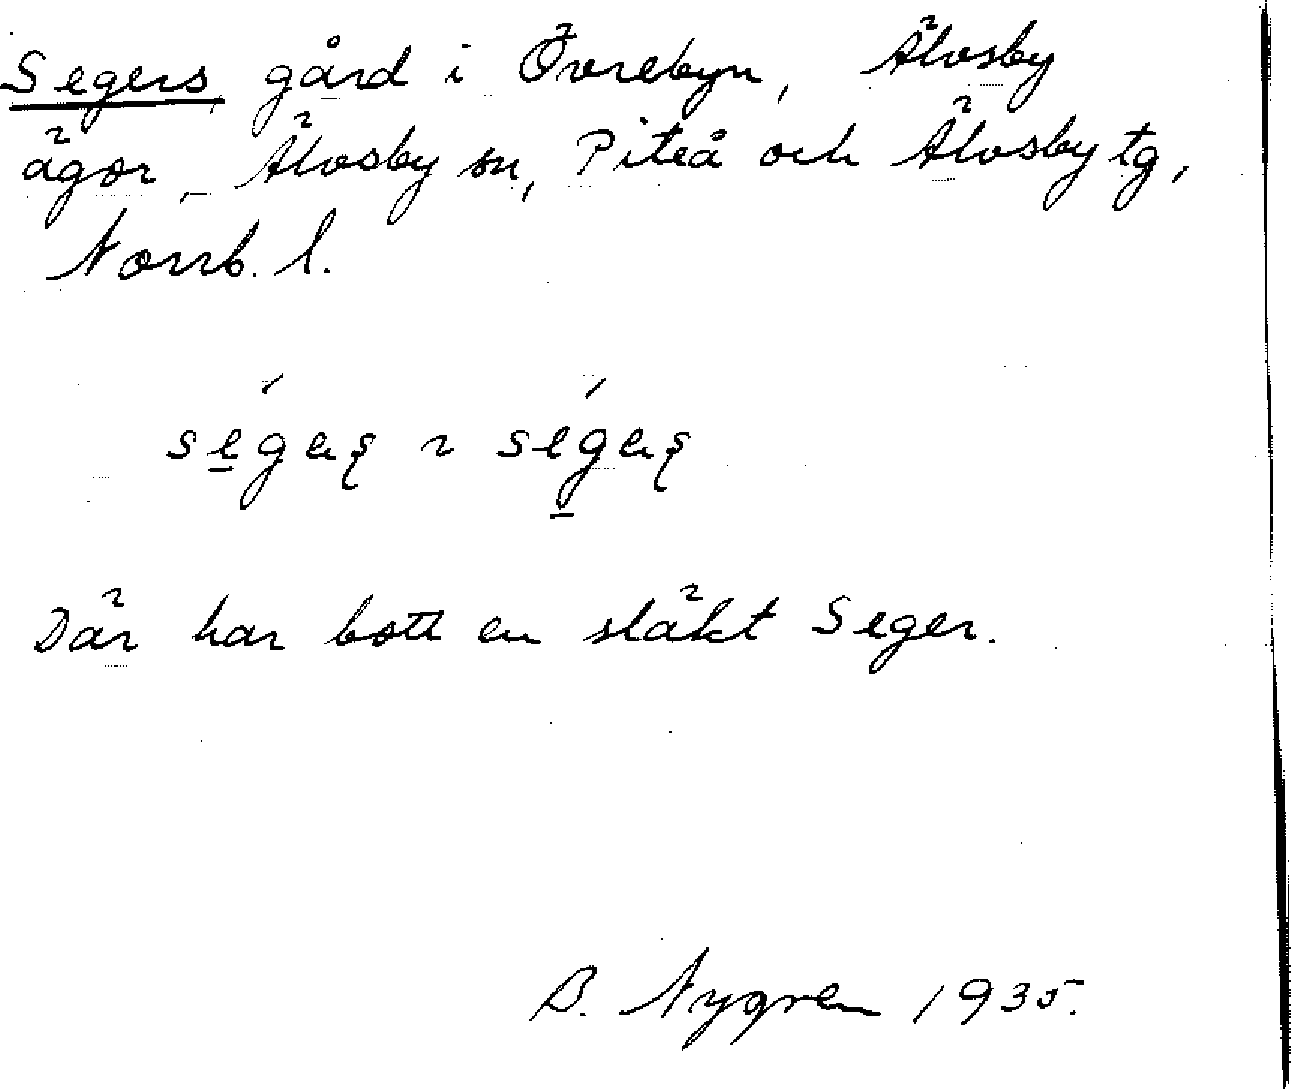 Segers, gård i Övrebyn, Älvsby
ägor, Älvsby sn, Piteå och Älvsby tg,
Norrb. l.
Där har bott en släkt Seger.
B. Nygren 1935.